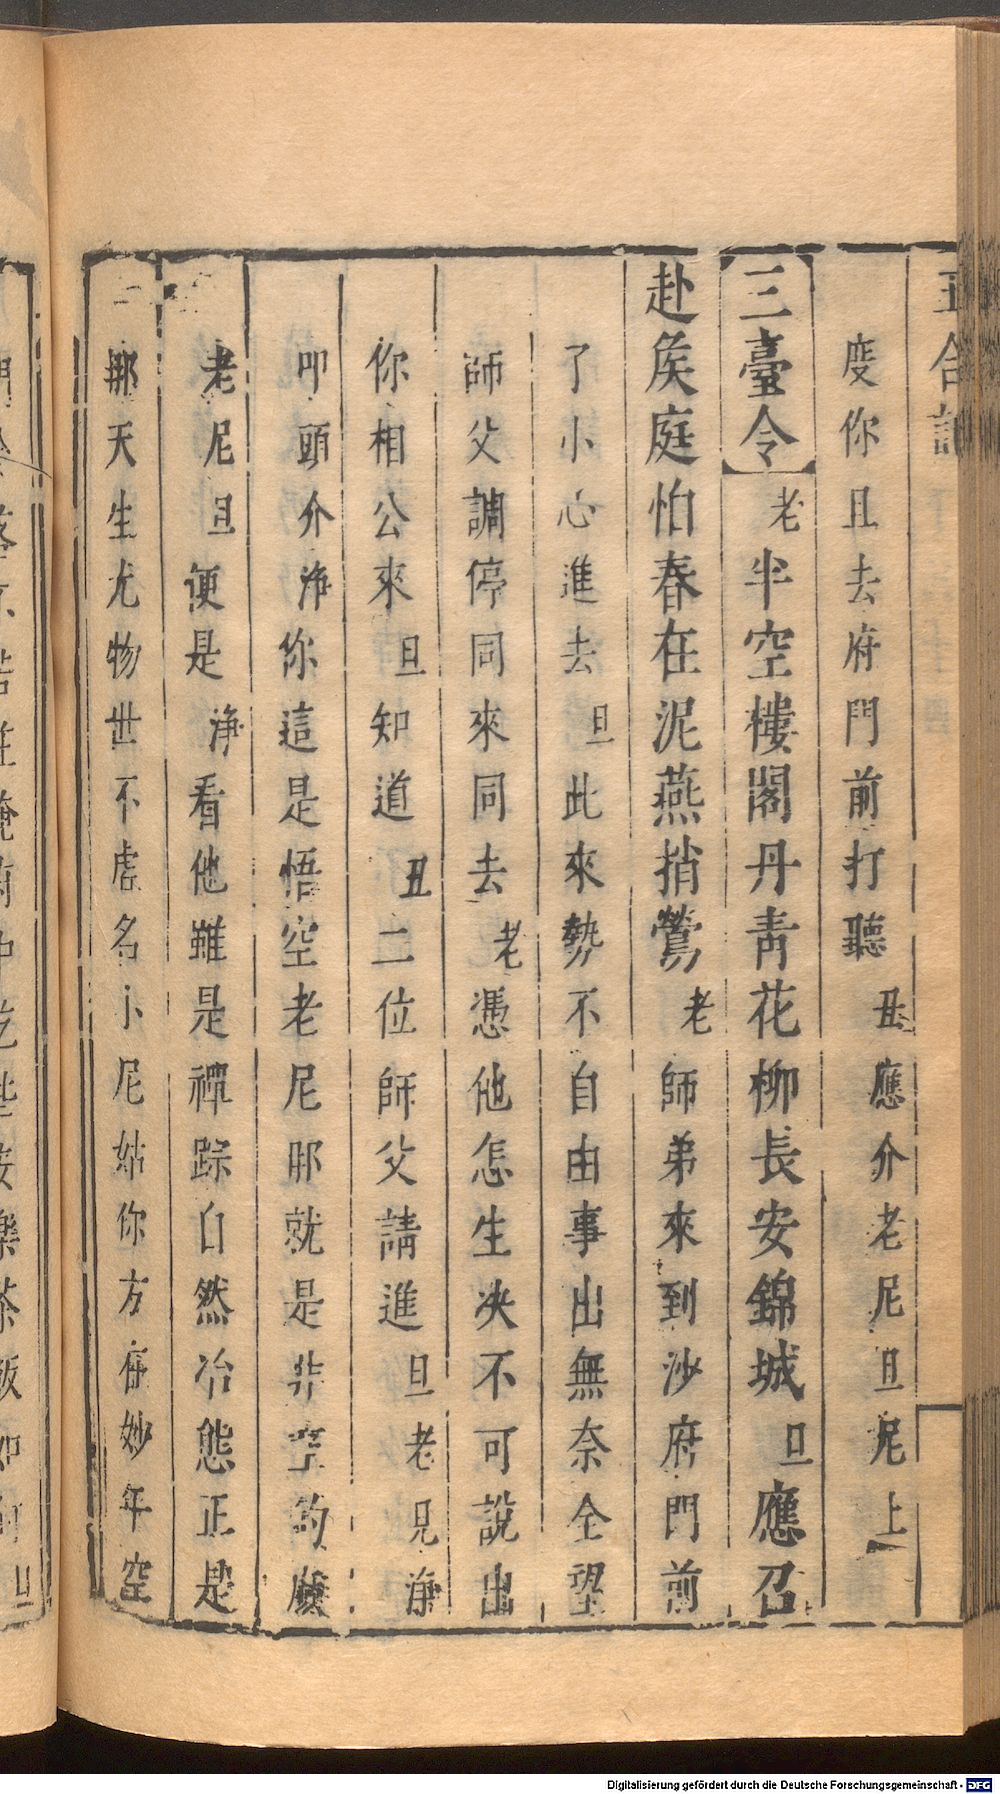 玉合記
度你且去府門前打聽丑應介老尼旦尼上
三臺令老半空樓閣丹青花柳長安錦城旦應召
赴矦庭怕春在泥燕捎鶯老師弟來到沙府門前
了小心進去旦此來勢不自由事出無奈全望
師父調停同來同去老憑他怎生决不可說出
你相公來旦知道丑二位師父請進旦老見淨
叩頭介淨你這是悟空老尼那就是非空的麽
老尼旦便是淨看他雖是禪踪自然冶態正是
那天生尤物世不虛名小尼姑你方在妙年空
Digitalisierung gefördert durch die Deutsche Forschungsgemeinschaft - DFG